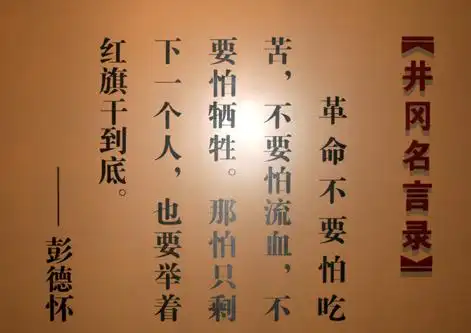 《井冈名言录》
革命不要怕吃
苦，不要怕流血，不
要怕牺牲。那怕只剩
下一个人，也要举着
红旗干到底。
——彭德怀